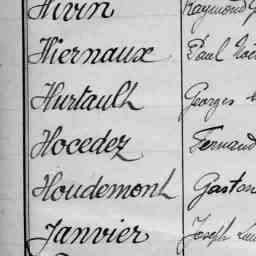 Hivin Raymond
Hiernaux Paul
Hurtault Georges
Hocedez Fernand
Houdemont Gaston
Janvier Joseph